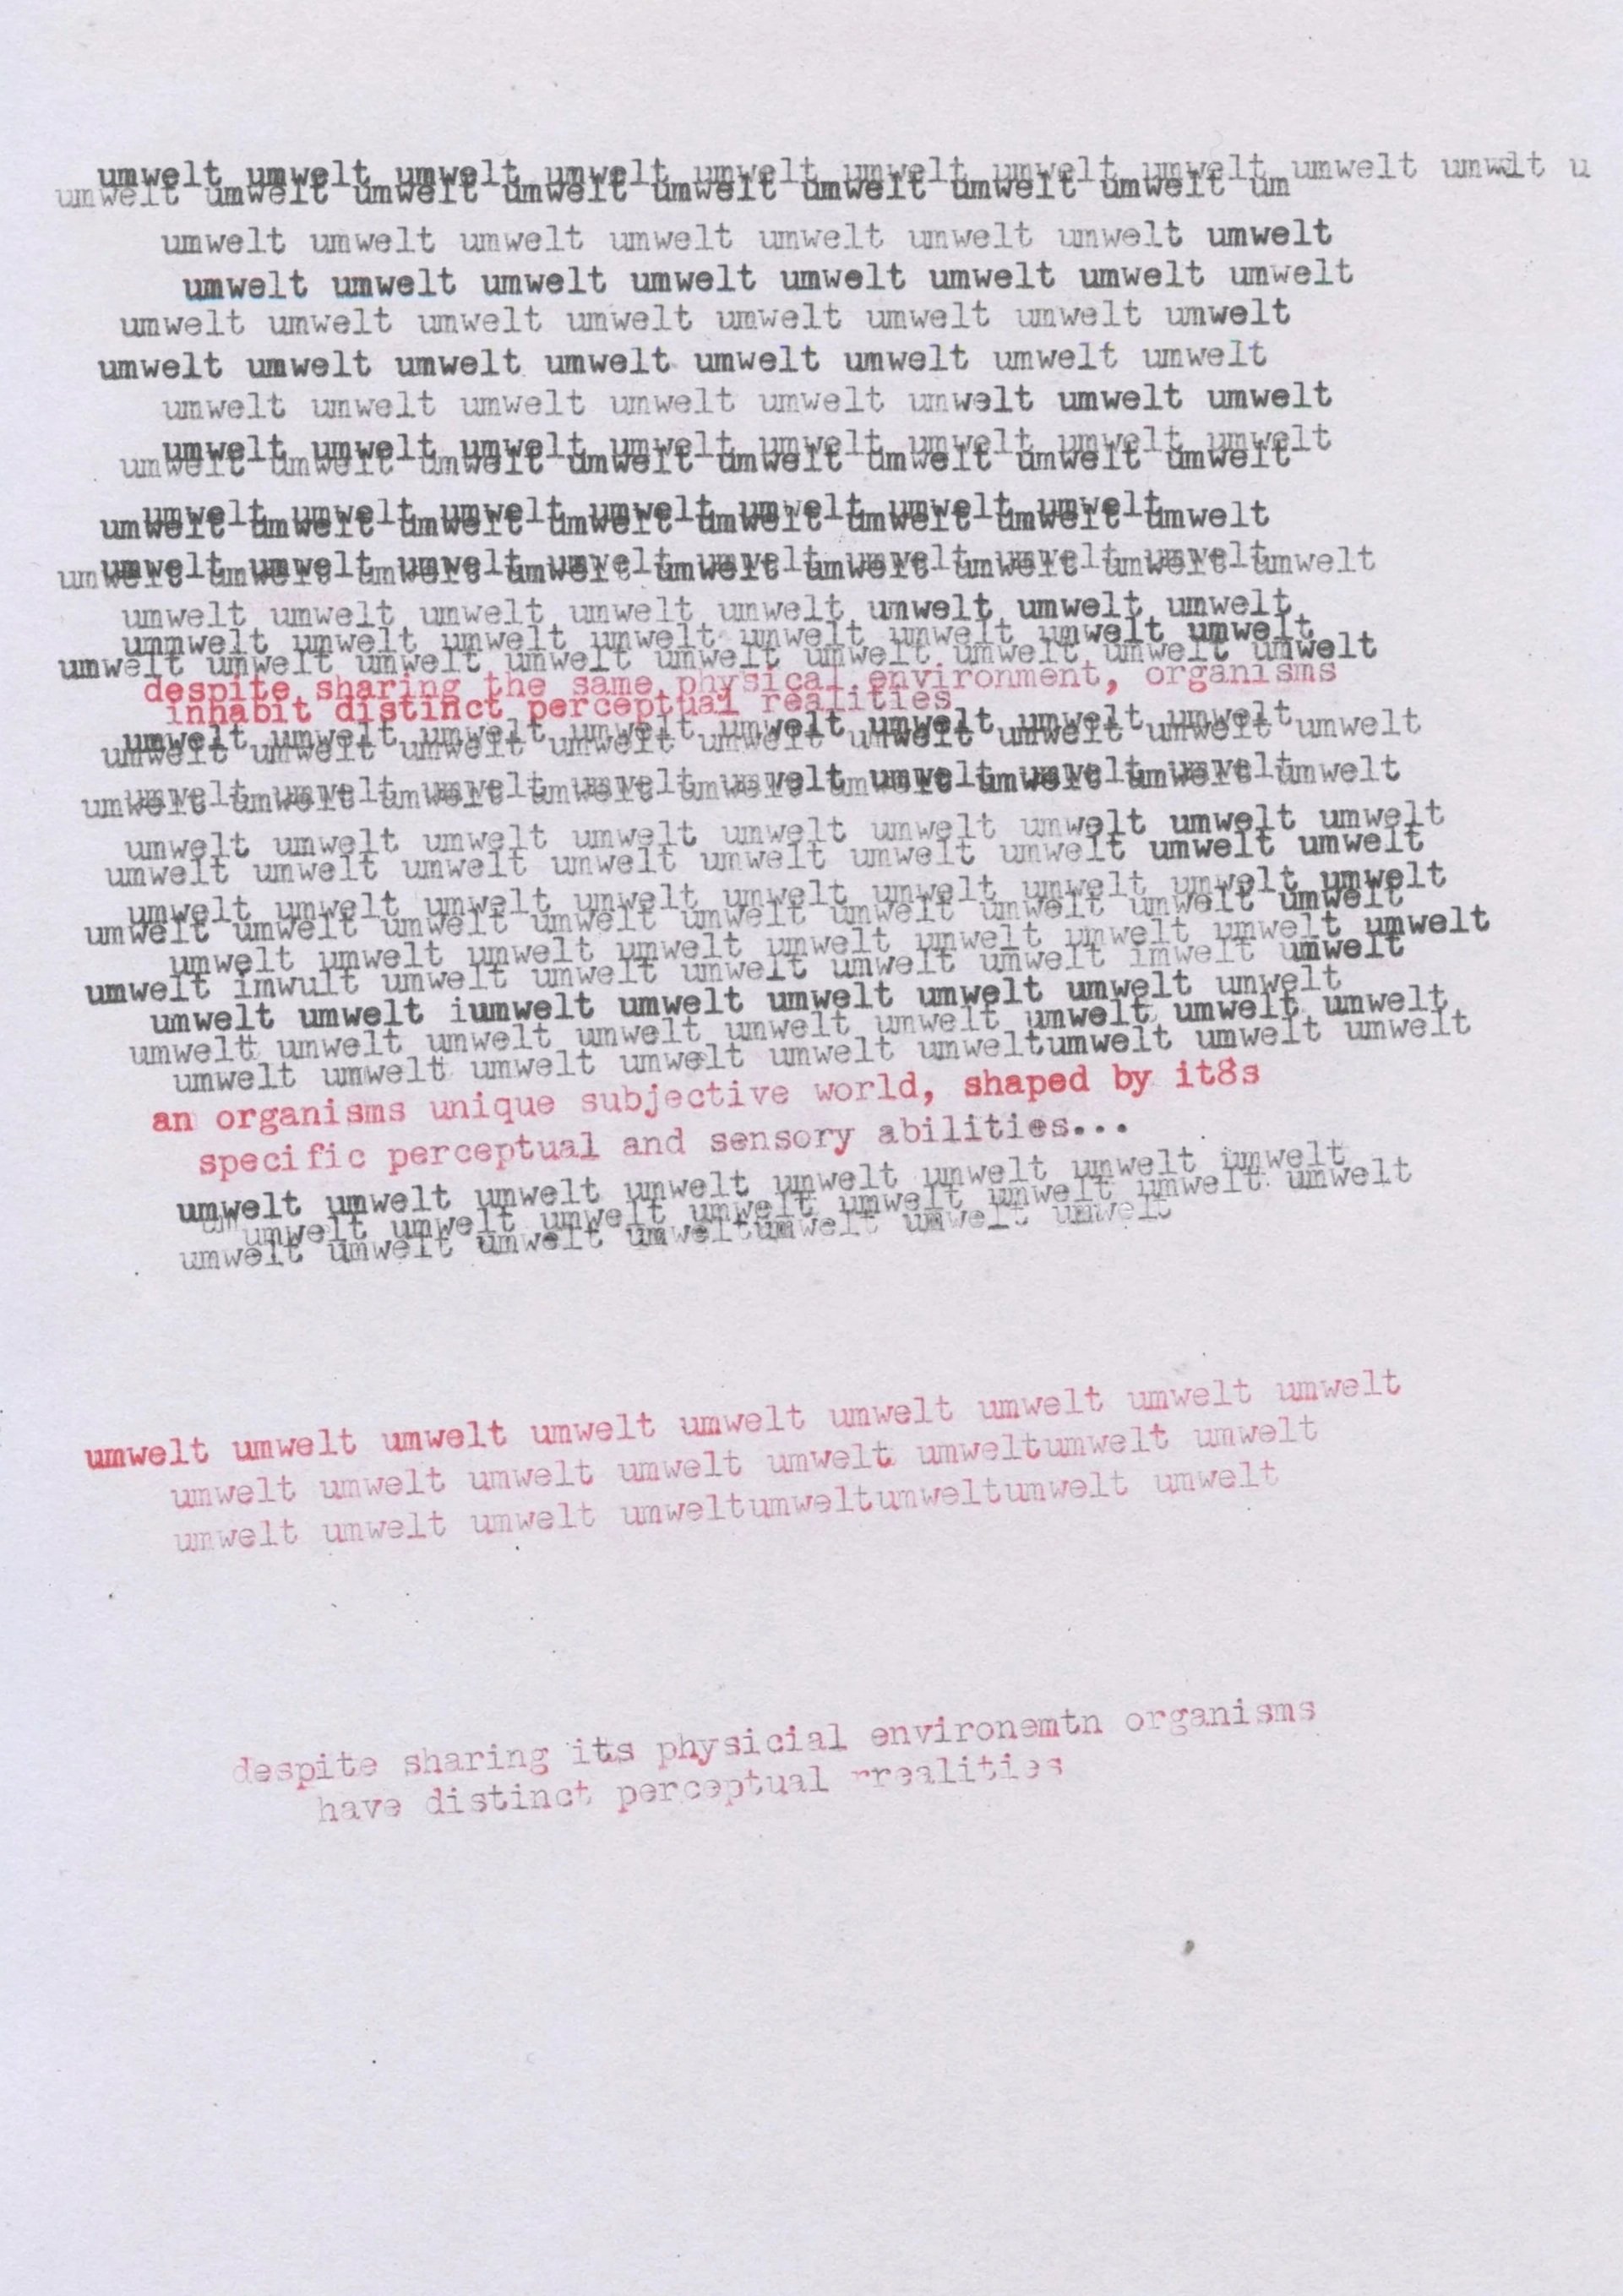 umwelt umwelt umwelt umwelt umwelt umwelt umwelt umwelt umwelt umwlt u
umwelt umwelt umwelt umwelt umwelt umwelt umwelt umwelt um
umwelt umwelt umwelt umwelt umwelt umwelt umwelt umwelt
umwelt umwelt umwelt umwelt umwelt umwelt umwelt umwelt
umwelt umwelt umwelt umwelt umwelt umwelt umwelt umwelt
umwelt umwelt umwelt umwelt umwelt umwelt umwelt umwelt
umwelt umwelt umwelt umwelt umwelt umwelt umwelt umwelt
umwelt umwelt umwelt umwelt umwelt umwelt umwelt umwelt
umwelt umwelt umwelt umwelt umwelt umwelt umwelt umwelt
umwelt umwelt umwelt umwelt umwelt umwelt umwelt
umwelt umwelt umwelt umwelt umwelt umwelt umwelt umwelt
umwelt umwelt umwelt umwelt umwelt umwelt umwelt umwelt
umwelt umwelt umwelt umwelt umwelt umwelt umwelt umwelt umwelt
umwelt umwelt umwelt umwelt umwelt umwelt umwelt umwelt
ummwelt umwelt umwelt umwelt umwelt umwelt umwelt umwelt
umwelt umwelt umwelt umwelt umwelt umwelt umwelt umwelt umwelt
despite sharing the same physical environment, organisms
inhabit distinct perceptual realities
umwelt umwelt umwelt umwelt umwelt umwelt umwelt umwelt
umwelt umwelt umwelt umwelt umwelt umwelt umwelt umwelt umwelt
umwelt umwelt umwelt umwelt umwelt umwelt umwelt umwelt
umwelt umwelt umwelt umwelt umwelt umwelt umwelt umwelt umwelt
umwelt umwelt umwelt umwelt umwelt umwelt umwelt umwelt umwelt
umwelt umwelt umwelt umwelt umwelt umwelt umwelt umwelt umwelt
umwelt umwelt umwelt umwelt umwelt umwelt umwelt umwelt umwelt
umwelt umwelt umwelt umwelt umwelt umwelt umwelt umwelt umwelt
umwelt umwelt umwelt umwelt umwelt umwelt umwelt umwelt umwelt
umwelt imwult umwelt umwelt umwelt umwelt umwelt imwelt umwelt
umwelt umwelt iumwelt umwelt umwelt umwelt umwelt umwelt
umwelt umwelt umwelt umwelt umwelt umwelt umwelt umwelt umwelt
umwelt umwelt umwelt umwelt umwelt umweltumwelt umwelt umwelt
an organisms unique subjective world, shaped by it8s
specific perceptual and sensory abilities...
umwelt umwelt umwelt umwelt umwelt umwelt umwelt umwelt
umwelt umwelt umwelt umwelt umwelt umwelt umwelt umwelt
umwelt umwelt umwelt umweltumwelt umwelt umwelt
umwelt umwelt umwelt umwelt umwelt umwelt umwelt umwelt umwelt
umwelt umwelt umwelt umwelt umwelt umweltumwelt umwelt
umwelt umwelt umwelt umweltumweltumweltumwelt umwelt
despite sharing its physicial environemtn organisms
have distinct perceptual rrealities